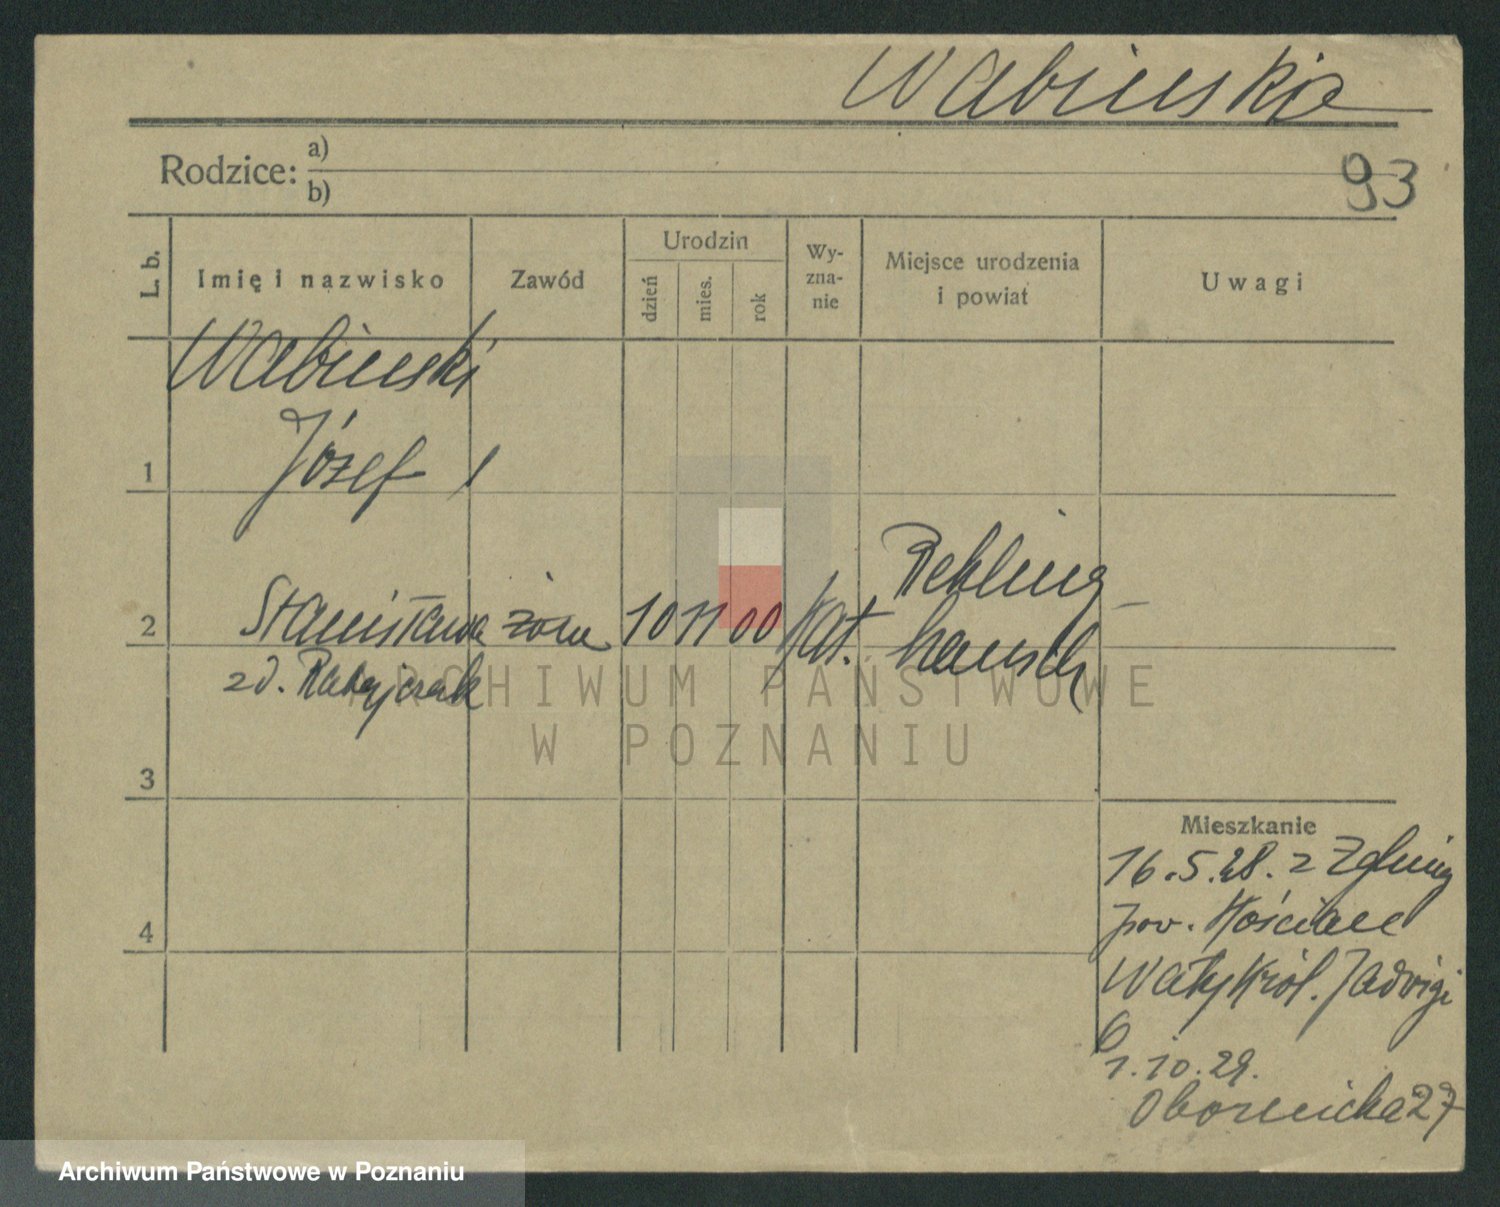 Wabinska
Rodzice: a)
b)
93
L. b.
Imię i nazwisko
Zawód
Urodzin
dzień
mies.
rok
Wy-
zna-
nie
Miejsce urodzenia
i powiat
Uwagi
Wabinski
1 Józef
2 Stanisława żona 10 11 00 kat. Rekling
hausen
zd. Ratajczak
3
4
Mieszkanie
16.5.28. z
pow. Kościan
Wały Król. Jadwigi
6
1.10.29.
Obornicka 27
ARCHIWUM PAŃSTWOWE
W POZNANIU
Archiwum Państwowe w Poznaniu